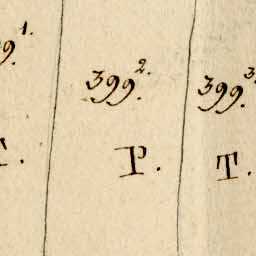 9.¹·
399.²·
399.³
T.
P.
T.